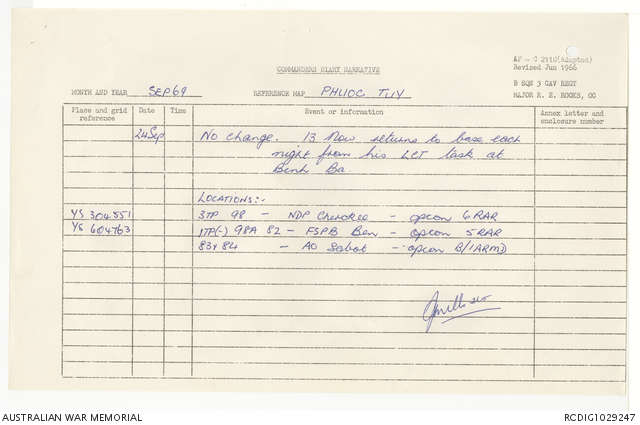 AF - C 2110(Adapted)
Revised Jun 1966
COMMANDERS DIARY NARRATIVE
B SQN 3 CAV REGT
MAJOR R. E. ROOKS, OC
MONTH AND YEAR SEP69 REFERENCE MAP PHUOC TUY
Place and grid reference Date Time Event or information Annex letter and enclosure number
24 Sep No change. 13 now returns to base each
night from his LCT task at
Binh Ba
LOCATIONS:-
YS 304551 3TP 98 - NDP Cherokee - opcon 6 RAR
YS 604763 1TP(-) 98A 82 - FSPB Ben - opcon 5 RAR
83Y84 - AO Sabot - opcon B/1ARMD
AUSTRALIAN WAR MEMORIAL
RCDIG1029247